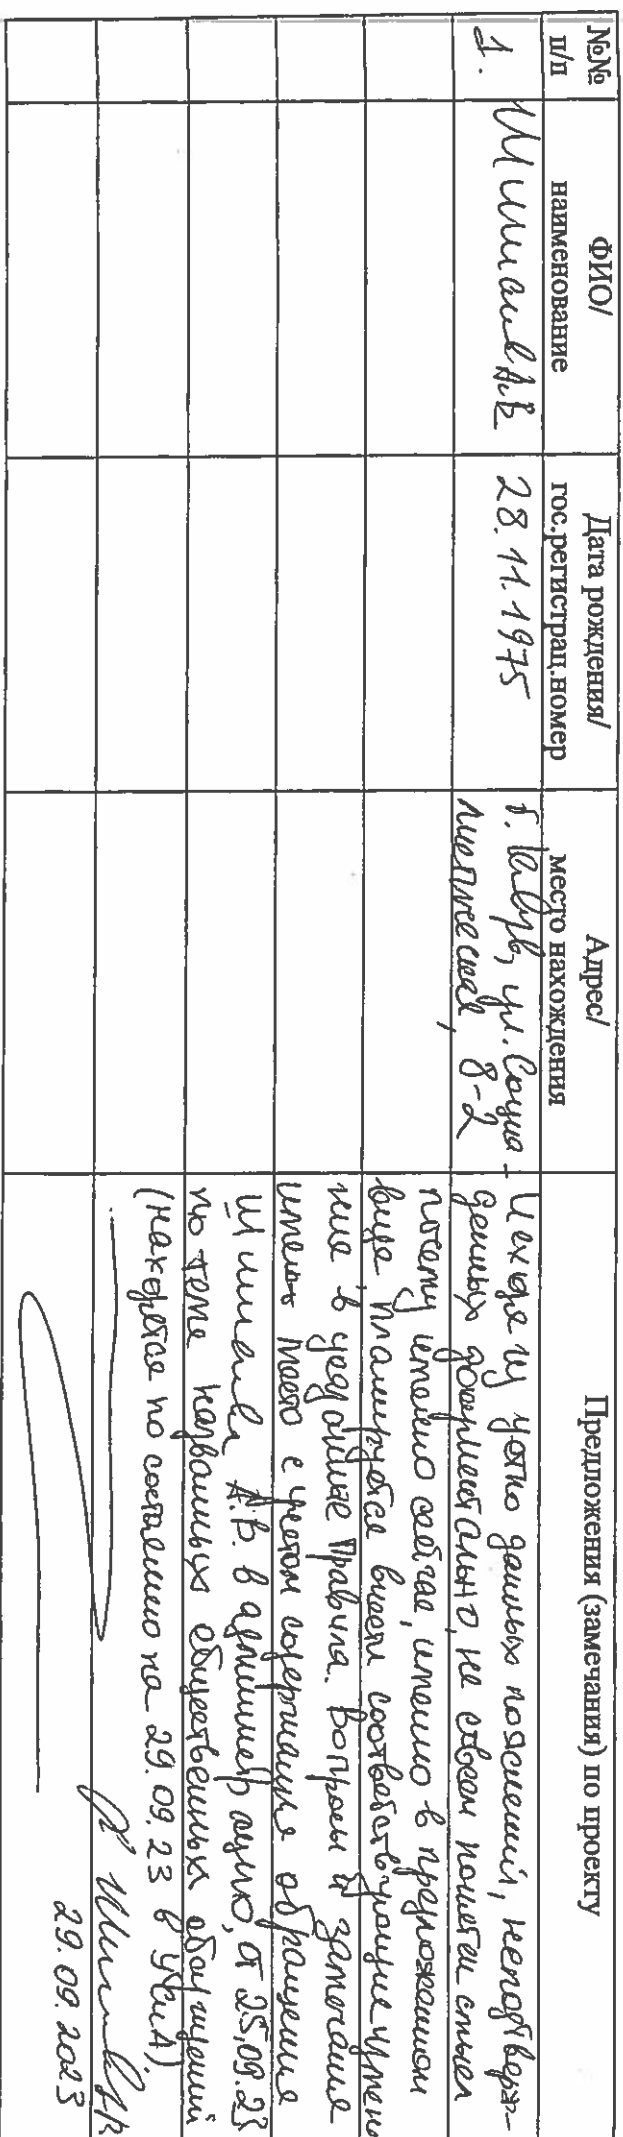 №№
п/п
ФИО/
наименование
Дата рождения/
гос.регистрац.номер
Адрес/
место нахождения
Предложения (замечания) по проекту
1.
Шишаев А.В
28.11.1975
ул. Социа-
листическая, 8-2
Исходя из устно данных пояснений, неподтверж-
денных документально, не совсем понятен смысл
почему именно сейчас, именно в предложенном
виде, планируется внести соответствующие измене
ние в указанные Правила. Вопросы и замечания
имеют место с учетом содержания обращения
Шишаева А.В. в администрацию, от 25.09.23
по теме названных общественных обсуждений
(находится по состоянию на 29.09.23 в УСиА).
29.09.2023